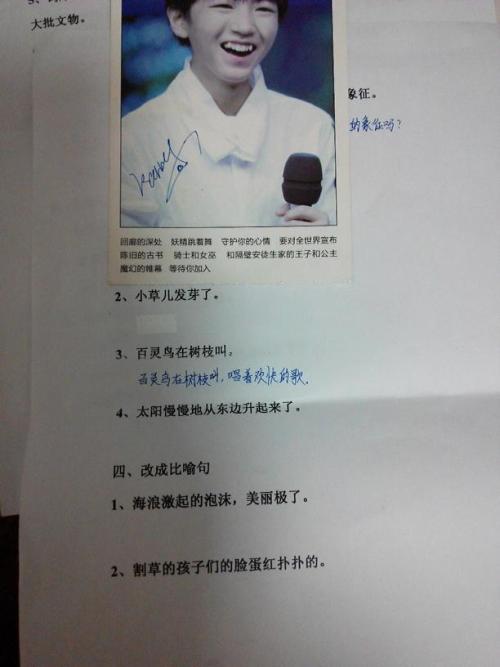 大批文物。
象征。
的象征吗？
回廊的深处 妖精跳着舞 守护你的心情 要对全世界宣布
陈旧的古书 骑士和女巫 和隔壁安徒生家的王子和公主
魔幻的帷幕 等待你加入
2、小草儿发芽了。
3、百灵鸟在树枝叫。
百灵鸟在树枝叫，唱着欢快的歌.
4、太阳慢慢地从东边升起来了。
四、改成比喻句
1、海浪激起的泡沫，美丽极了。
2、割草的孩子们的脸蛋红扑扑的。